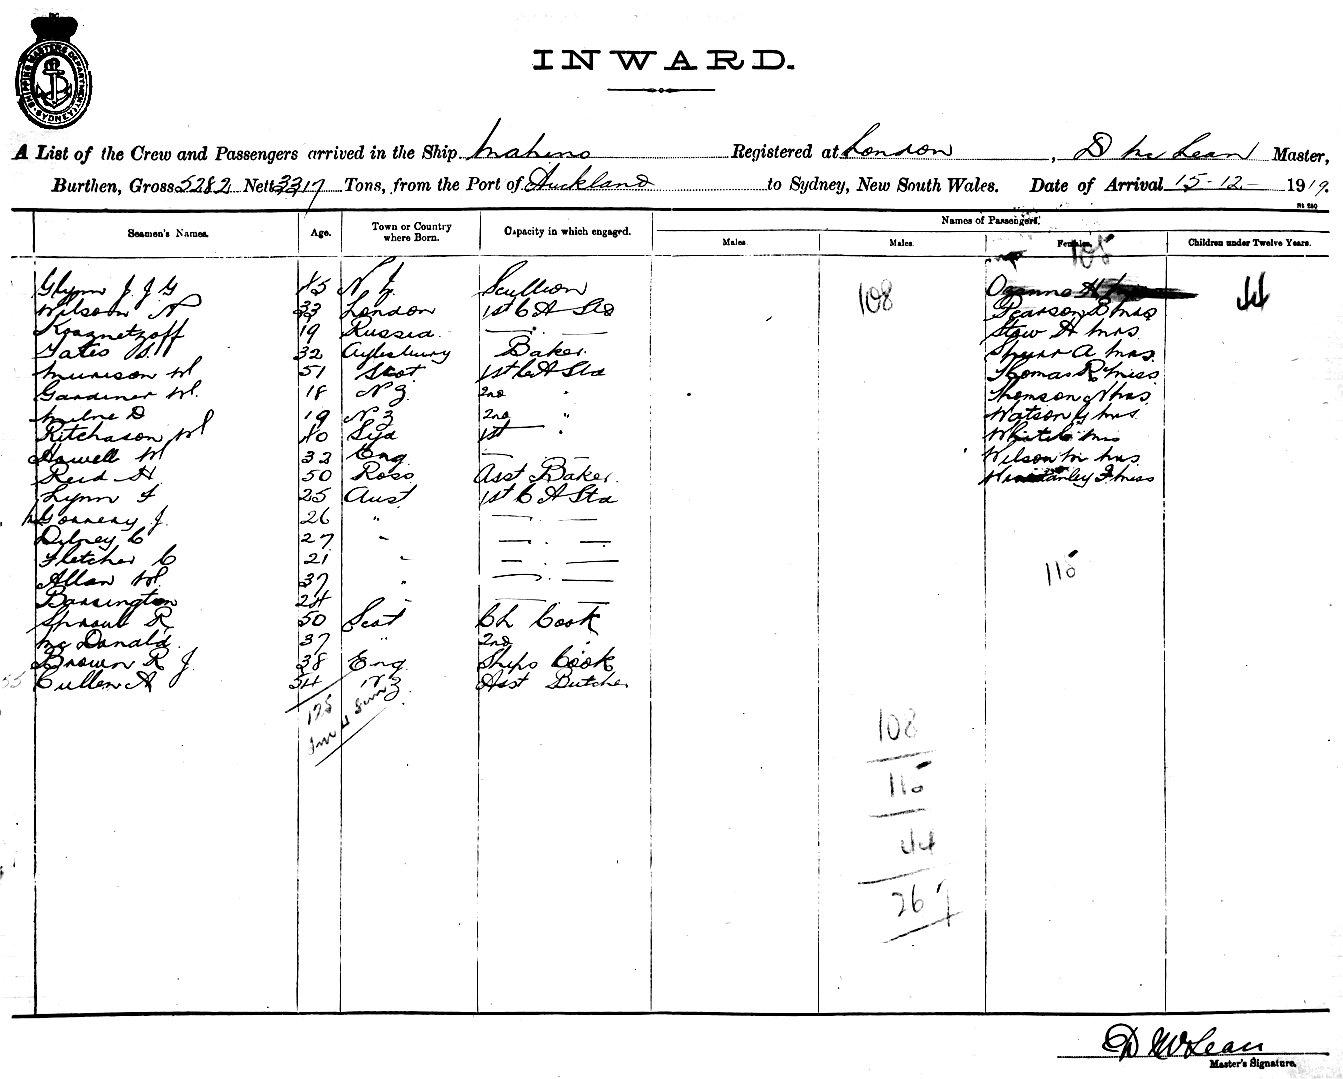 SHIPPING MASTERS DEPARTMENT SYDNEY
INWARD.
A List of the Crew and Passengers arrived in the Ship Maheno Registered at London, D McLean Master,
Burthen, Gross 5282 Nett 3317 Tons, from the Port of Auckland to Sydney, New South Wales. Date of Arrival 15-12- 1919.
Seamen's Names. Age. Town or Country where Born. Capacity in which engaged. Names of Passengers.
Males. Males. Females. Children under Twelve Years.
108
Glynn J J G 45 N. Z. Scullion 108 44
Wilson N 33 London 1st C A Std Pearson Mrs
Kouznetzoff 19 Russia — . — Stow H Mrs
Yates 32 Aylesbury Baker A Mrs
Munison W 51 Scot 1st C A Std Thomas R Miss
Gardiner W. 18 N Z 2nd " Thomson Mrs
Milne D 19 N Z 2nd " Watson G Mrs
Ritchason W 40 Syd 1st " White Mrs
Howell W 32 Eng — — Wilson M Mrs
Reid H 50 Ross Asst Baker F Miss
Lynn F 25 Aust 1st C A Std
J. 26 " — . —
C 27 " — . —
Fletcher C 21 " — . —
Allan W. 37 " — . — 115
Barrington 24 — —
Sproul R 50 Scot Ch Cook
McDonald 37 " 2nd "
Brown R J. 38 Eng Ships Cook
55 Cullen A 54 N Z Asst Butcher
175
108
115
44
267
D McLean
Master's Signature.